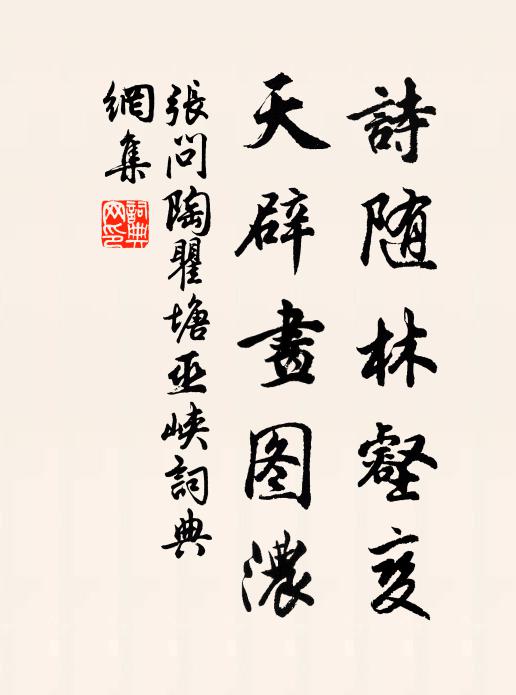 詩随林壑变
天辟畫图濃
張问陶瞿塘巫峡詞典
網集
詞典
网印